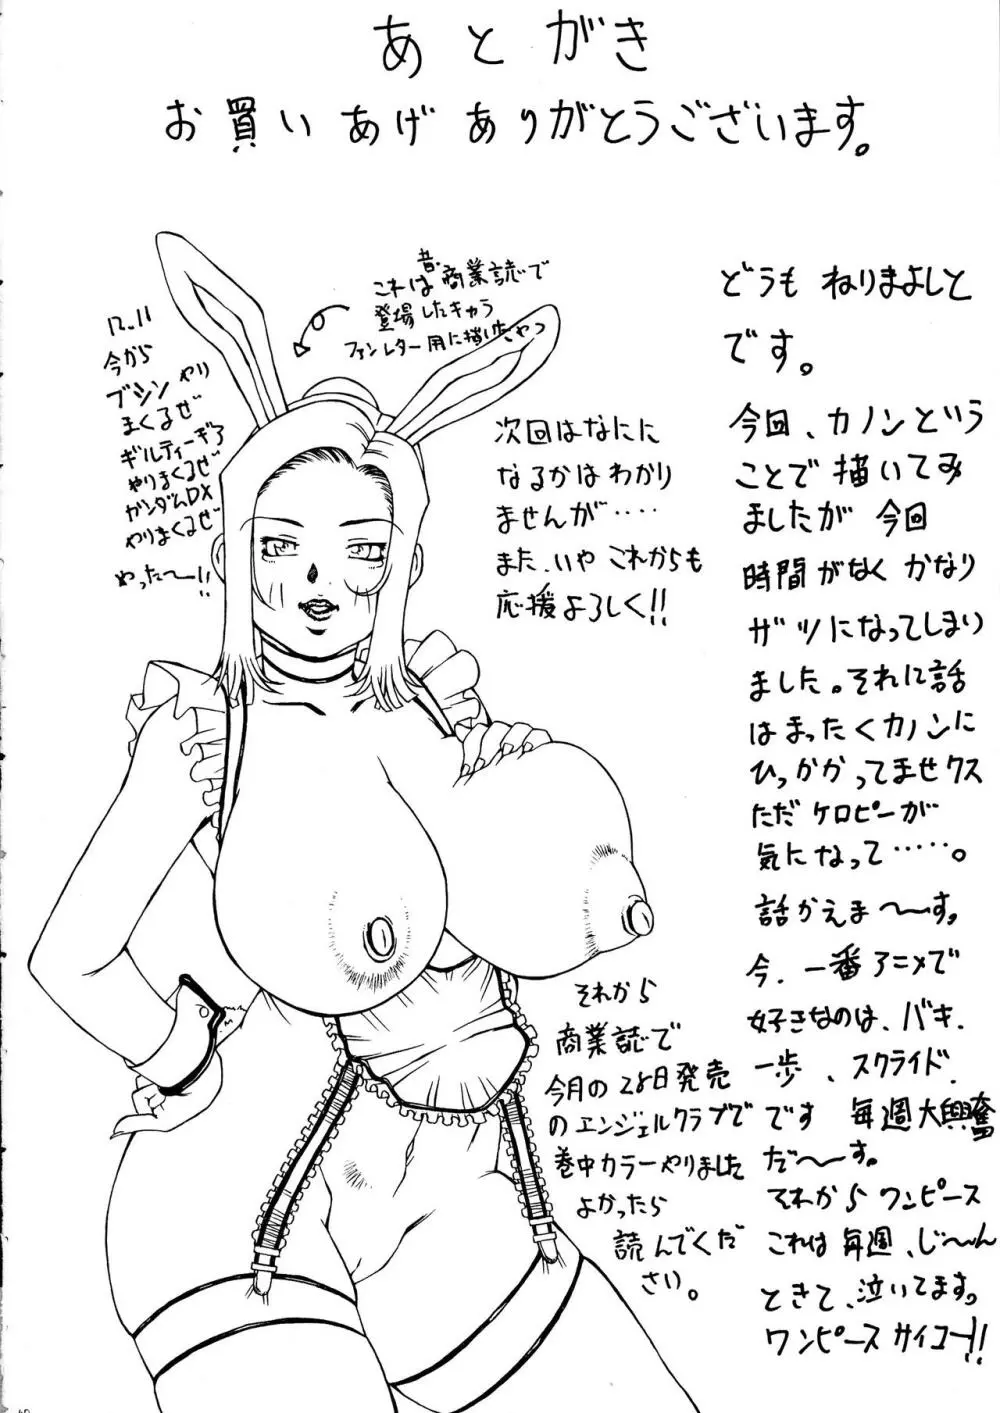 あとがき
お買いあげありがとうございます。
どうも ねりまよしと
です。
今回、カノンという
ことで描いてみ
ましたが 今回
時間がなく かなり
ザツになってしまい
ました。それに話
はまったくカノンに
ひっかかってませクス
ただケロピーが
気になって‥‥‥。
話かえま〜〜す。
今、一番アニメで
好きなのは、バキ、
一歩、スクライド、
です 毎週大興奮
だ〜〜す。
それから ワンピース
これは 毎週、じ〜〜ん
ときて、泣いてます。
ワンピース サイコー!!
昔、
これは商業誌で
登場したキャラ
ファンレター用に描いたやつ
次回はなにに
なるかは わかり
ませんが‥‥‥
また、いや これからも
応援よろしく!!
12.11
今から
ブシン やり
まくるぜ
ギルティーギア
やりまくるぜ
ガンダムDX
やりまくるぜ
やった〜〜!!
それから
商業誌で
今月の28日発売
のエンジェルクラブで
巻中カラーやりました
よかったら
読んでくだ
さい。